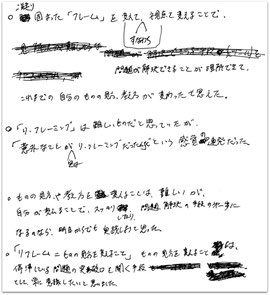 ○ 固まった「フレーム」を変えて、視点を変えることで、
すなわち
問題が解決できることが理解できて、
これまでの自分のものの見方、考え方が変わったと思えた。
○ 「リ・フレーミング」は難しいものだと思ってったが、
「意外なことがリ・フレーミングだったんだ」という感覚の連発だった。
○ ものの見方や考え方を変えることは、難しいが、
自分が変えることで、スッキリしたり、問題解決の手段の1つに
なるのなら、明日からでも実践しようと思った。
○ 「リフレーム=ものの見方を変えること」ものの見方を変えること
停滞している問題の突破口を開く手段
として、常に意識したいと思いました。